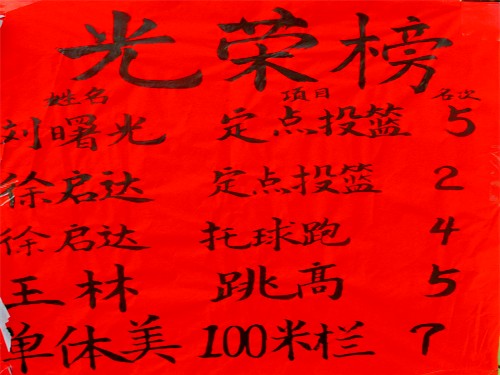 光荣榜
姓名 项目 名次
刘曙光 定点投篮 5
徐启达 定点投篮 2
徐启达 托球跑 4
王林 跳高 5
单休美 100米栏 7